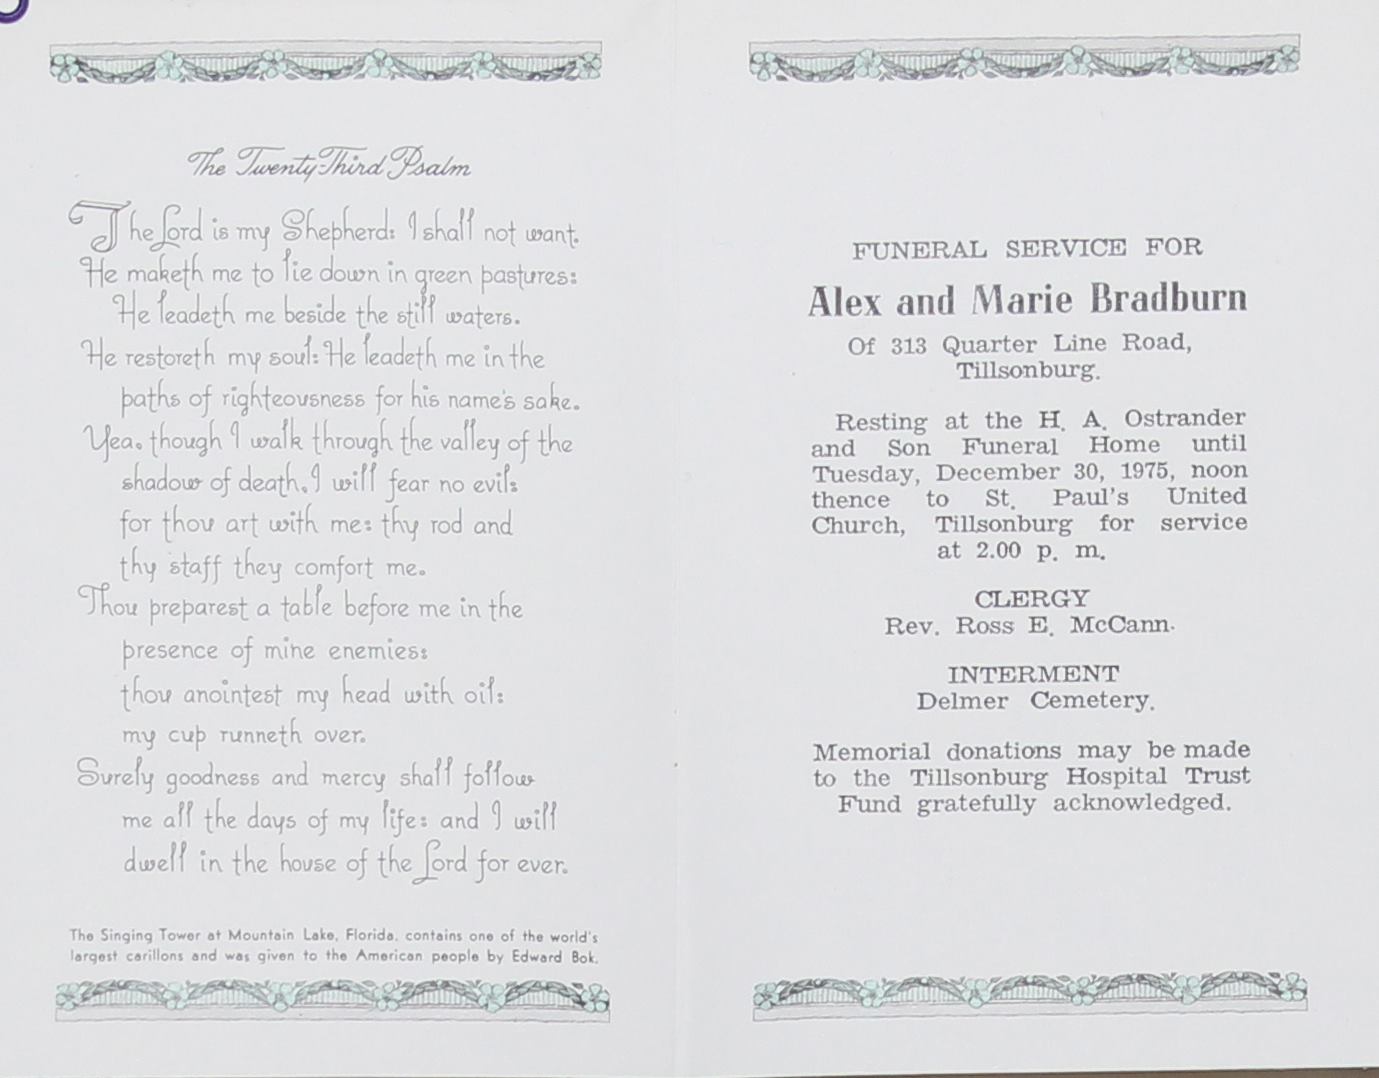 The Twenty-Third Psalm
The Lord is my Shepherd: I shall not want.
He maketh me to lie down in green pastures:
He leadeth me beside the still waters.
He restoreth my soul: He leadeth me in the
paths of righteousness for his name's sake.
Yea, though I walk through the valley of the
shadow of death, I will fear no evil:
for thou art with me: thy rod and
thy staff they comfort me.
Thou preparest a table before me in the
presence of mine enemies:
thou anointest my head with oil:
my cup runneth over.
Surely goodness and mercy shall follow
me all the days of my life: and I will
dwell in the house of the Lord for ever.
The Singing Tower at Mountain Lake, Florida, contains one of the world's
largest carillons and was given to the American people by Edward Bok.
FUNERAL SERVICE FOR
Alex and Marie Bradburn
Of 313 Quarter Line Road,
Tillsonburg.
Resting at the H. A. Ostrander
and Son Funeral Home until
Tuesday, December 30, 1975, noon
thence to St. Paul's United
Church, Tillsonburg for service
at 2.00 p. m.
CLERGY
Rev. Ross E. McCann.
INTERMENT
Delmer Cemetery.
Memorial donations may be made
to the Tillsonburg Hospital Trust
Fund gratefully acknowledged.